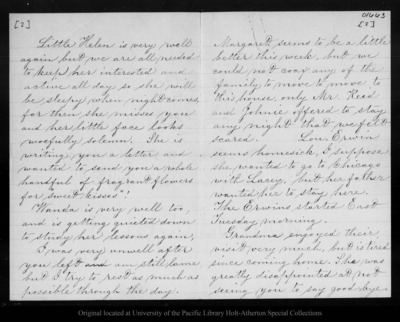 01663
[2]
Little Helen is very well
again but we are all needed
to keep her interested and
active all day so she will
be sleepy when night comes,
for then she misses you
and her little face looks
woefully solemn. She is
writing you a letter and
wanted to send you a whole
handful of fragrant flowers
for sweet kisses".
Wanda is very well too,
and is getting quieted down
to study her lessons again.
I was very unwell after
you left and am still lame
but I try to rest as much as
possible through the day.
[3]
Margaret seems to be a little
better this week, but we
could not coax any of the
family to move to move to
this house, only Mr. Reid
and Johnie offered to stay
any night that we felt
scared. Lou Erwin
seems homesick, I suppose
she wanted to go to Chicago
with Lacey, but her father
wanted her to stay here.
The Erwins started East
Tuesday morning.
Grandma enjoyed their
visit very much, but is tired
since coming home. She was
greatly disappointed at not
seeing you to say good bye.
Original located at University of the Pacific Library Holt-Atherton Special Collections